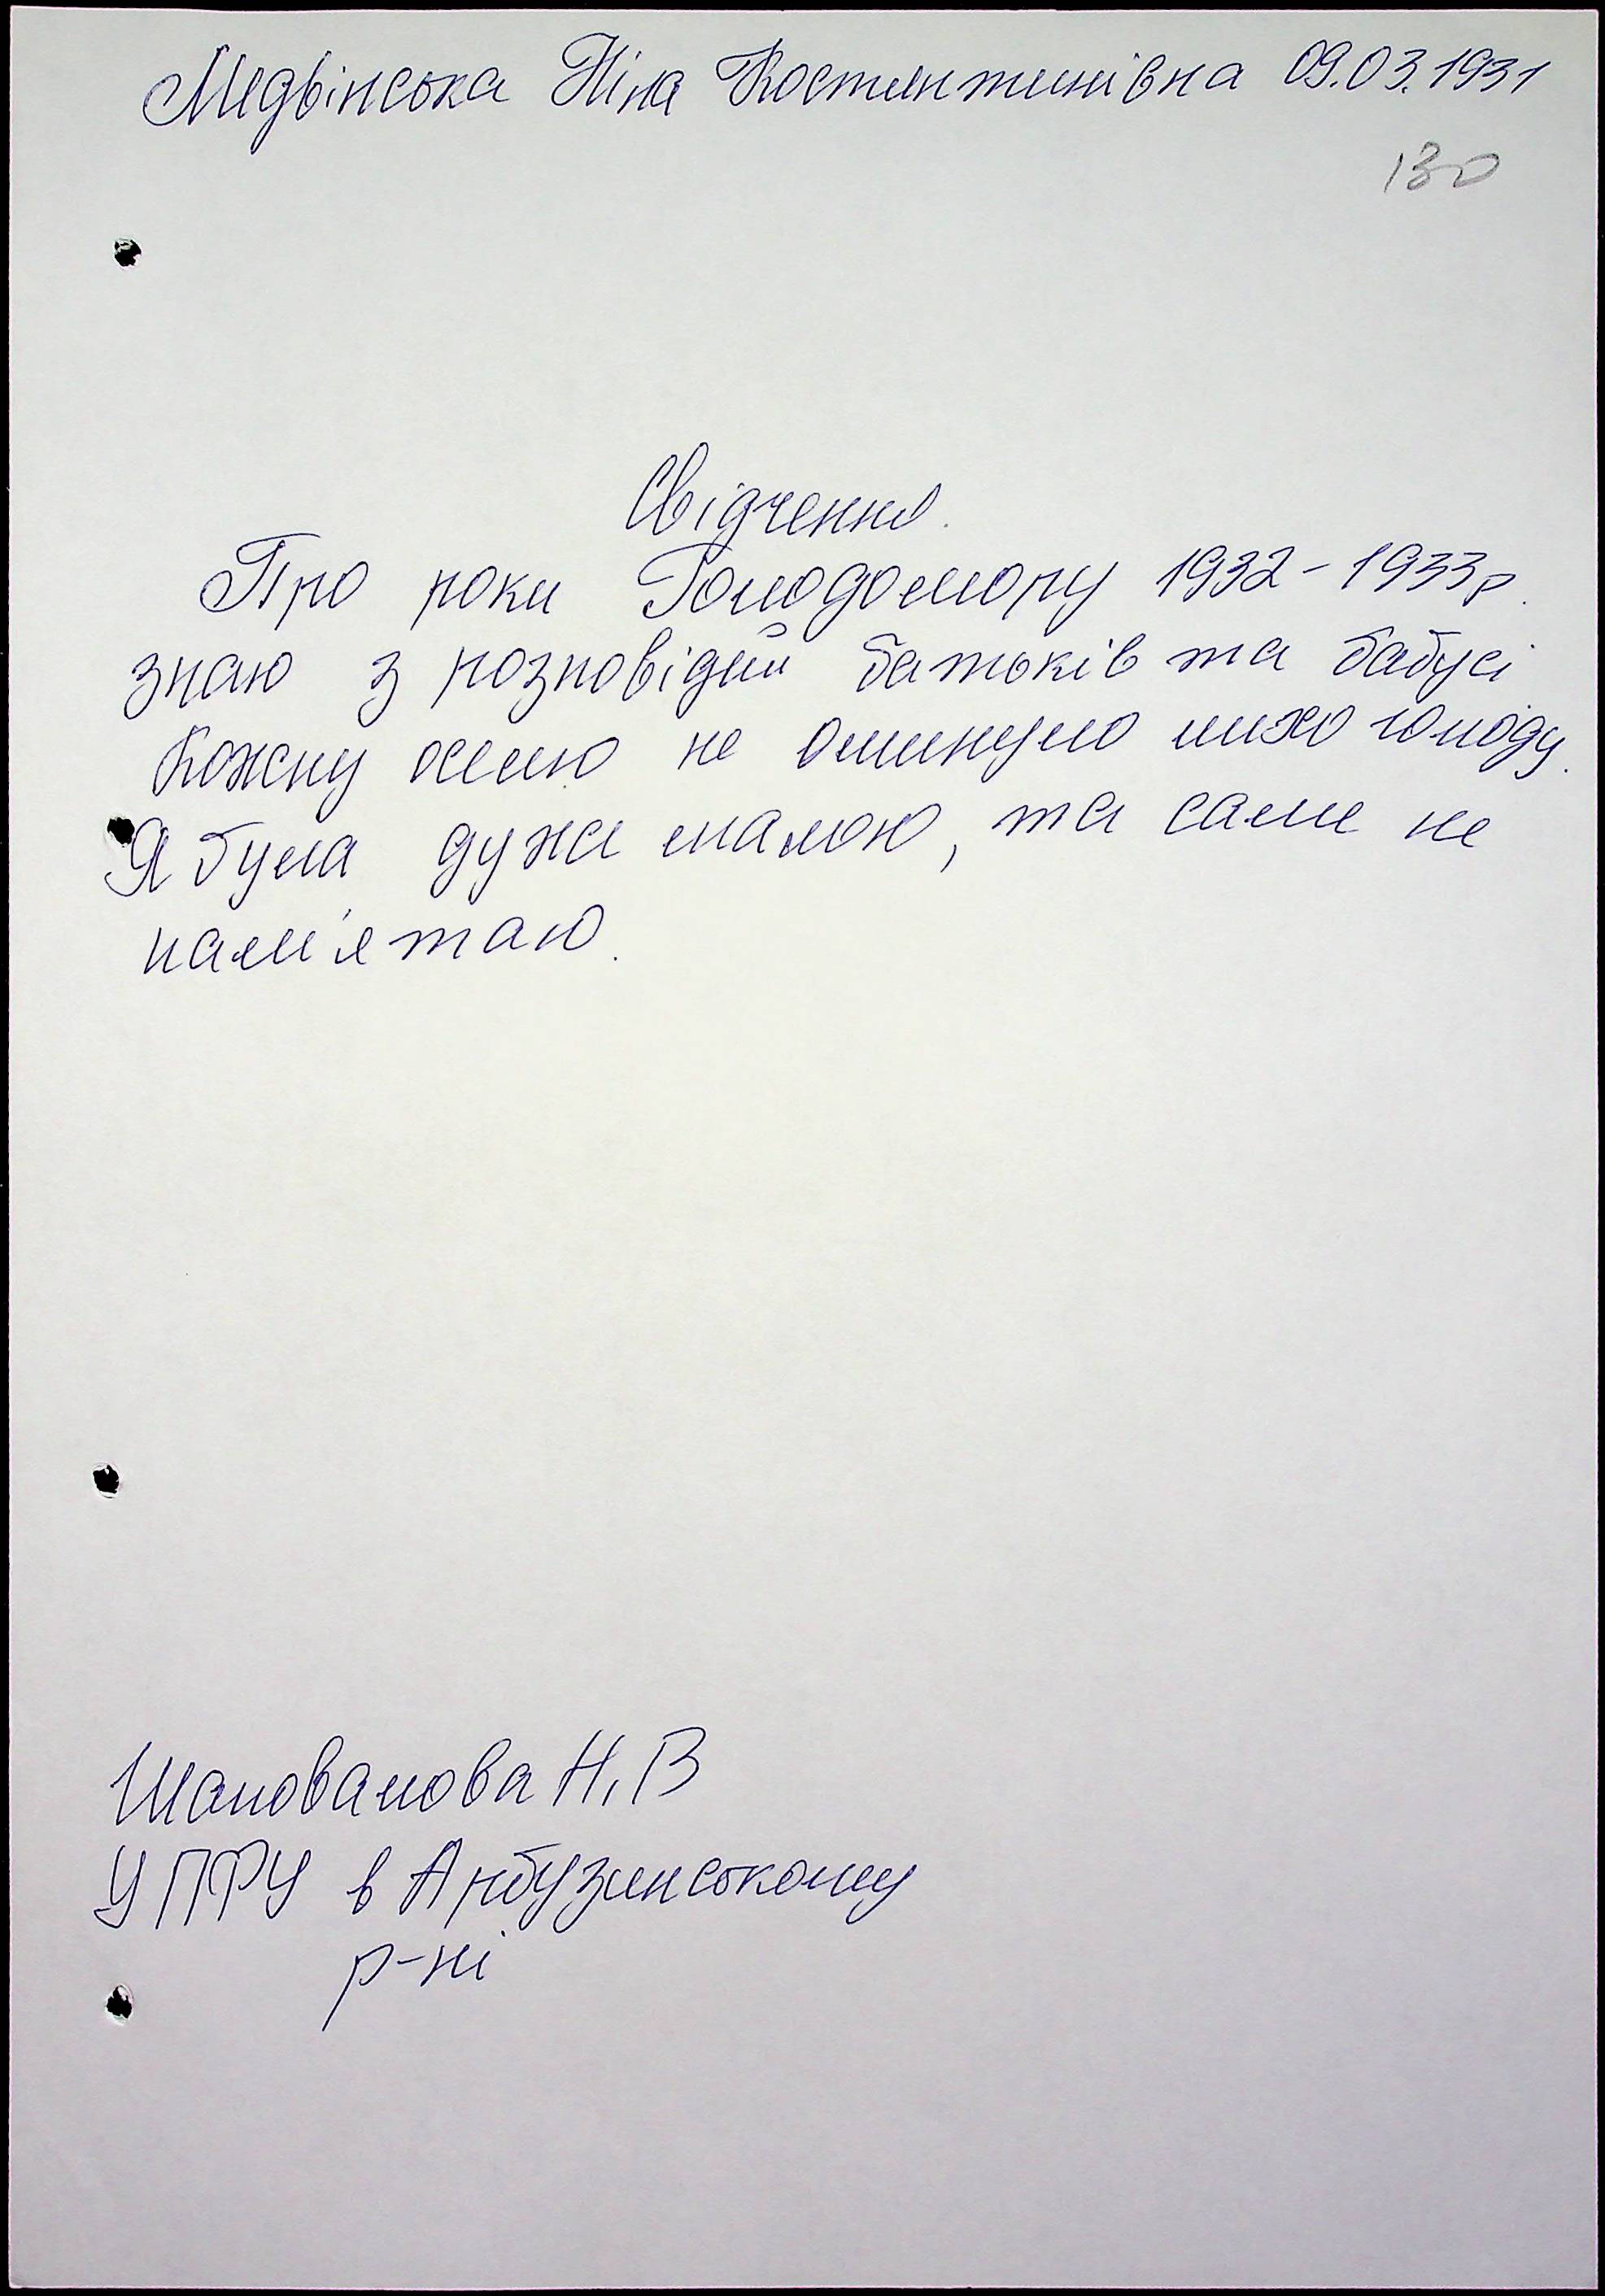 Медвінська Ніна Костянтинівна 09.03.1931
130
Свідчення.
Про роки Голодомору 1932-1933р.
знаю з розповідей батьків та бабусі
Кожну оселю не оминуло лихо голоду.
Я була дуже малою, та саме не
пам'ятаю.
Шаповалова Н.В
УПФУ в Арбузинському
р-ні